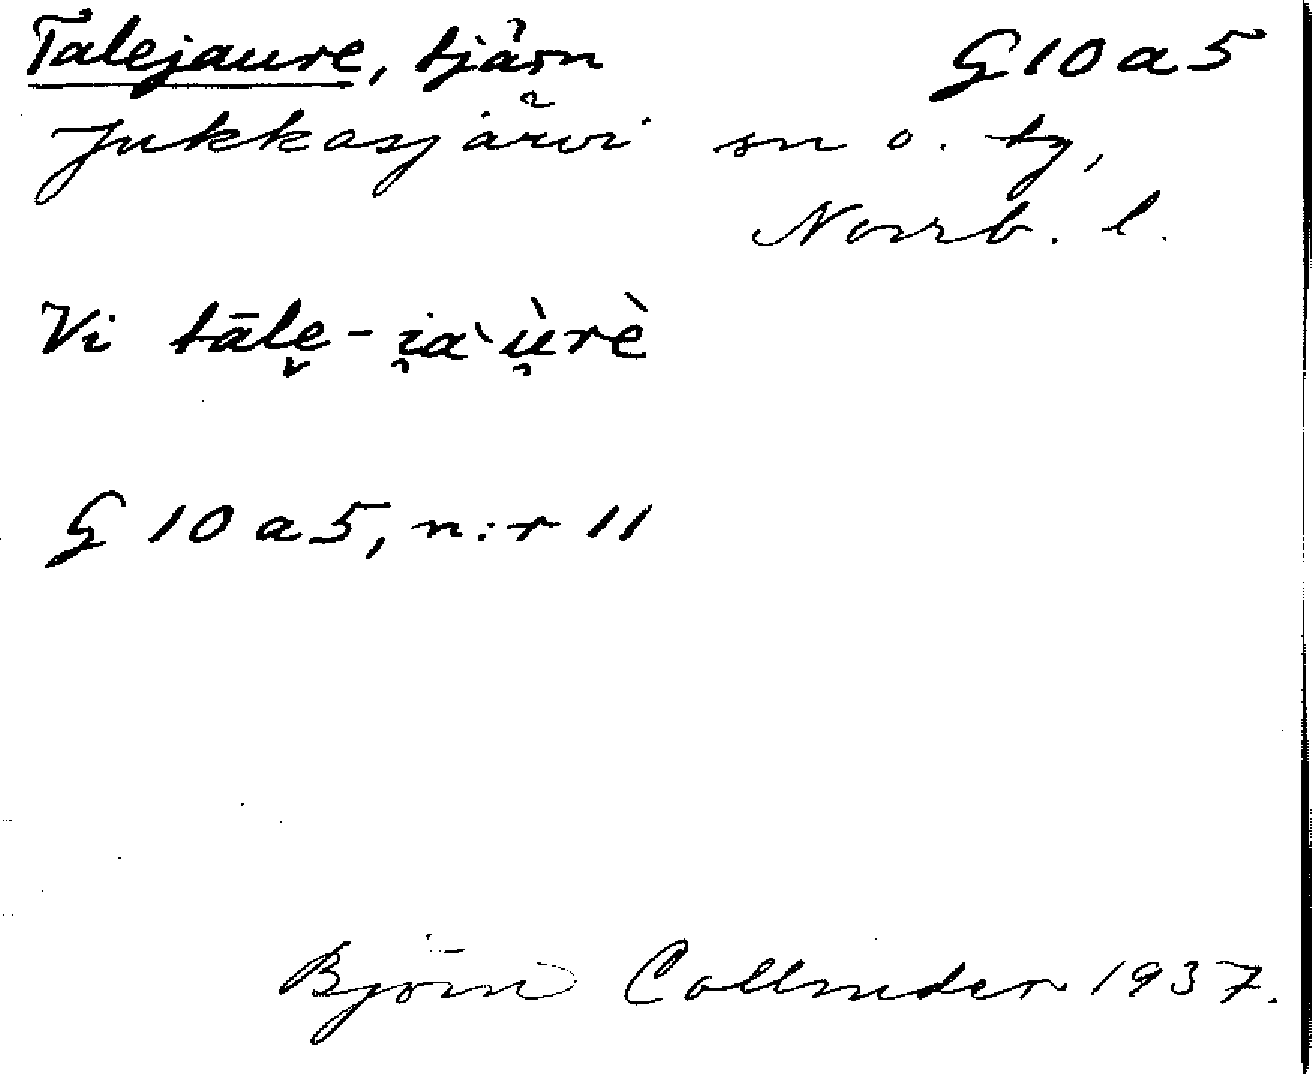 Talejaure, tjärn G10a5
Jukkasjärvi sn o. tg,
Norrb. l.
Vi tāle̬-i̯a`ù̯rè
G 10 a 5, n:r 11
Björn Collinder 1937.